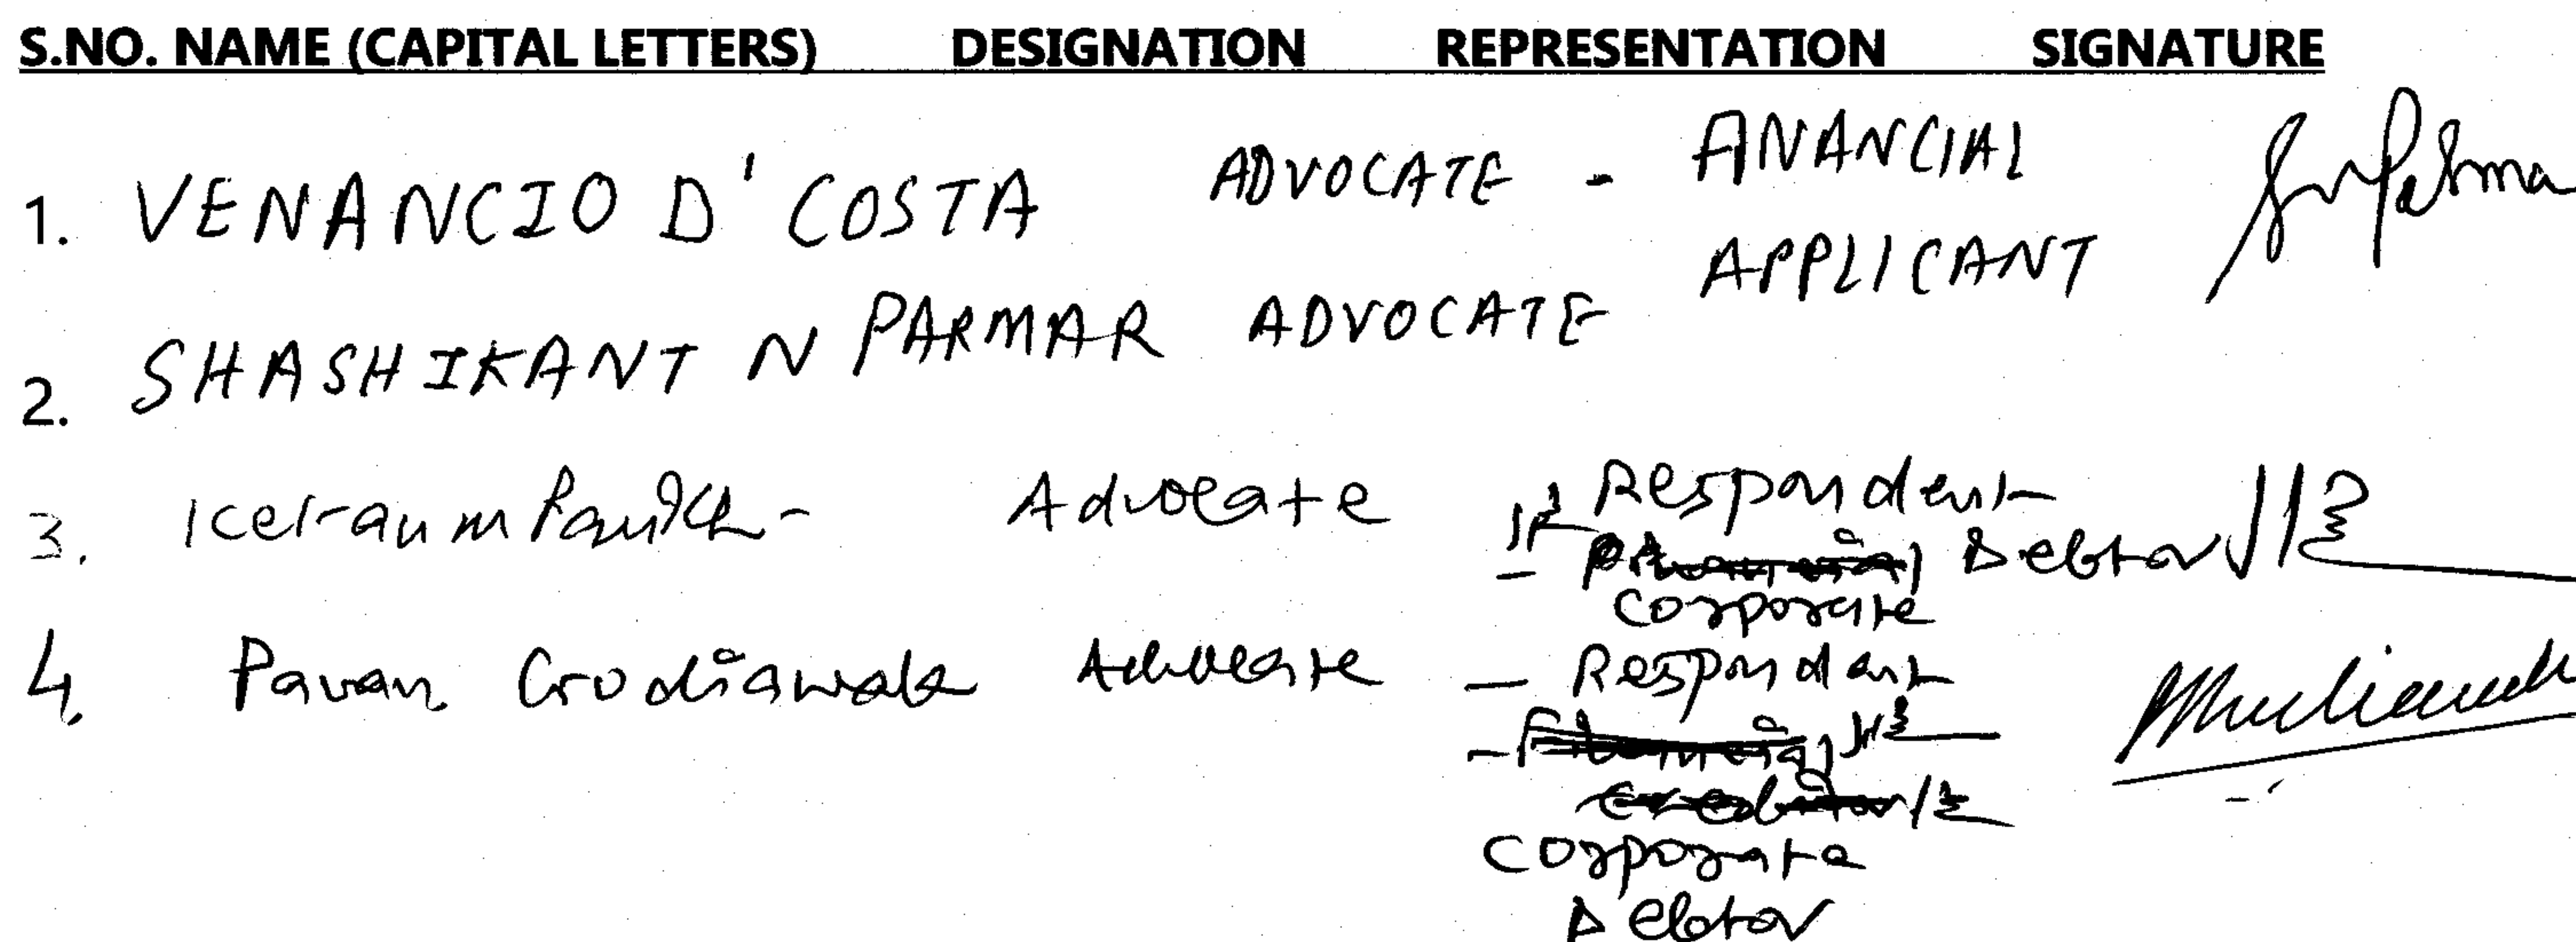 S.NO. NAME (CAPITAL LETTERS) DESIGNATION REPRESENTATION SIGNATURE
1. VENANCIO D'COSTA ADVOCATE - FINANCIAL
APPLICANT
2. SHASHIKANT N PARMAR ADVOCATE
3. Advocate Respondent
- Debtor
Corporate
4. Pavan Godiawala Advocate - Respondent
-
Corporate
Debtor